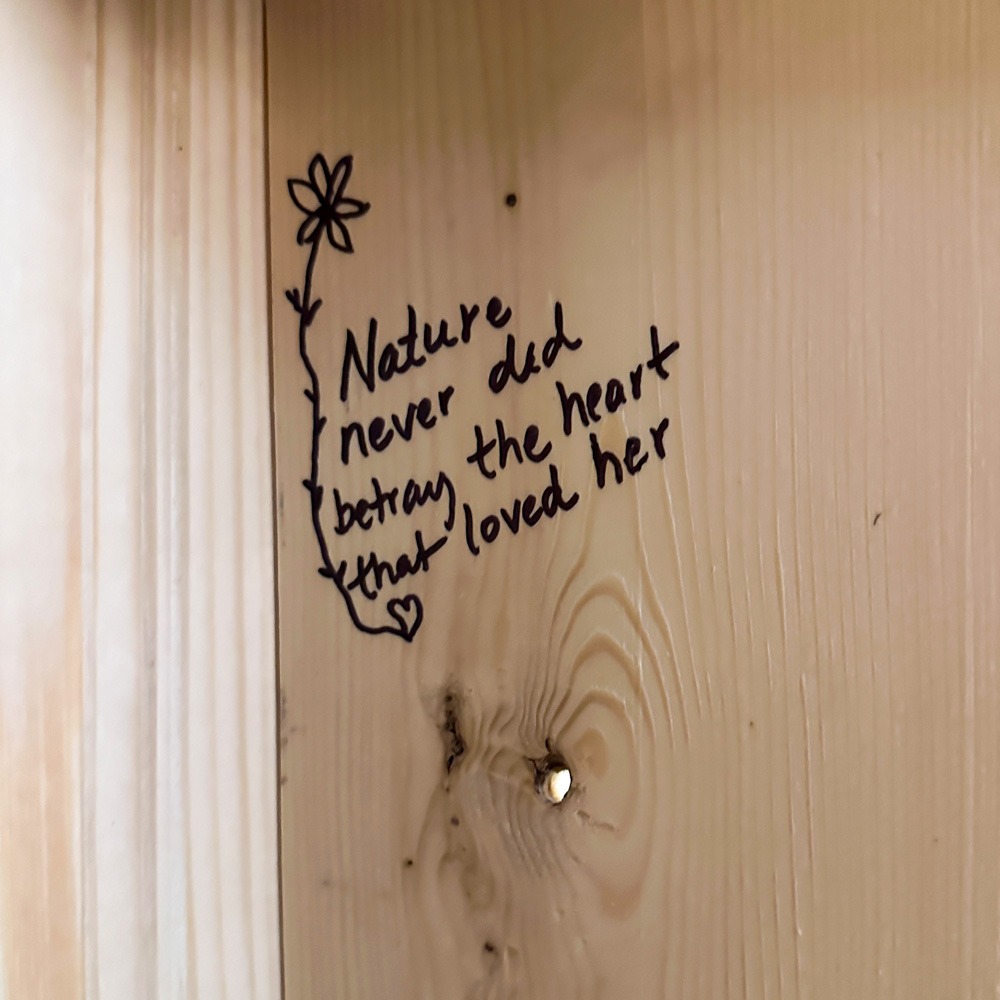 Nature
never did
betray the heart
that loved her